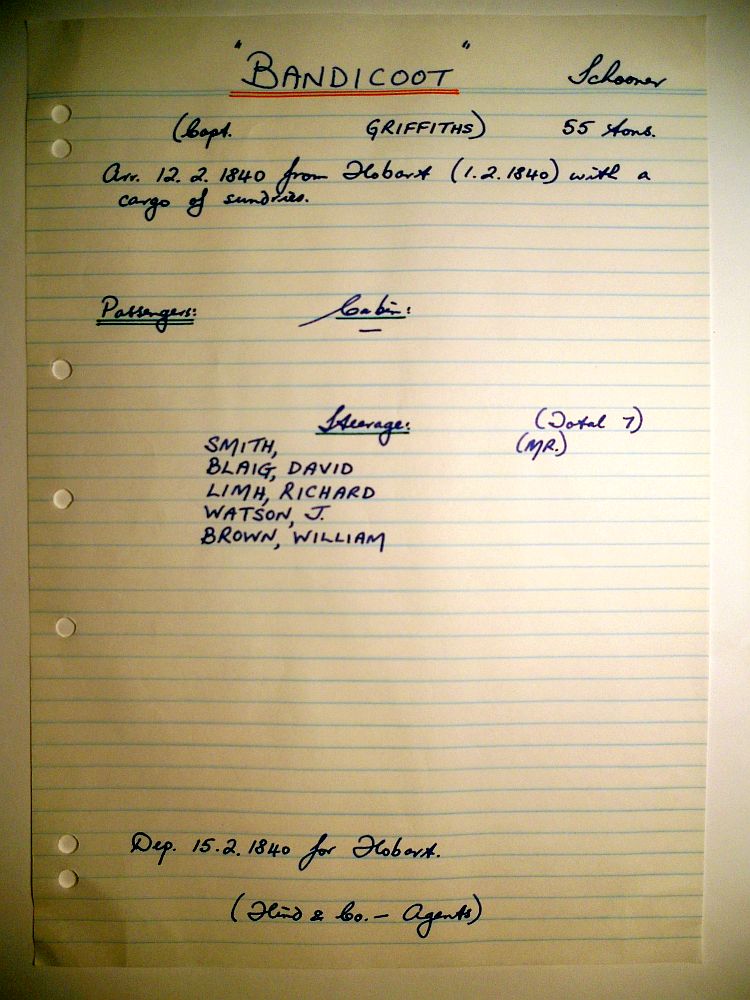 "BANDICOOT" Schooner
(Capt. GRIFFITHS) 55 tons.
Arr. 12.2.1840 from Hobart (1.2.1840) with a
cargo of sundries.
Passengers: Cabin:
—
Steerage: (Total 7)
SMITH, (MR.)
BLAIG, DAVID
LIMH, RICHARD
WATSON, J.
BROWN, WILLIAM
Dep. 15.2.1840 for Hobart.
(Hind & Co. — Agents)